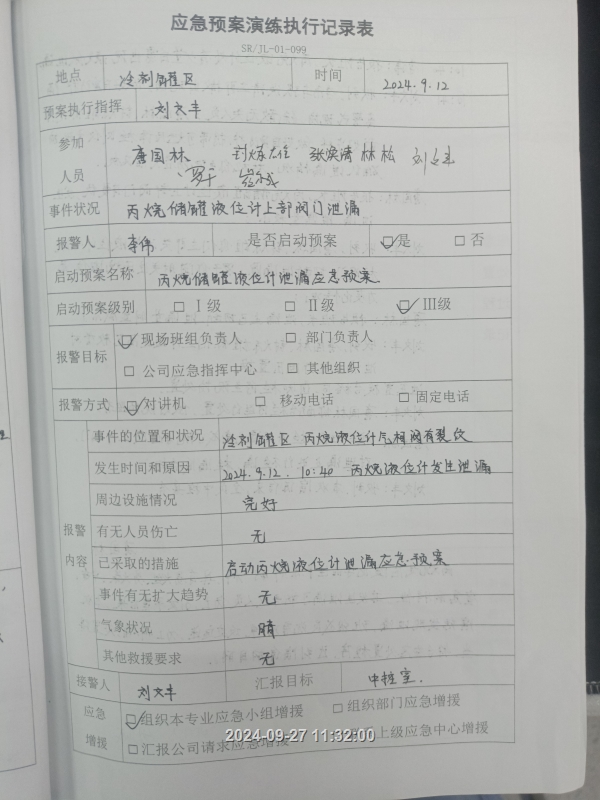 应急预案演练执行记录表
SR/JL-01-099
地点 冷剂罐区 时间 2024.9.12
预案执行指挥 刘文丰
参加 唐国林 张焕清 林松
人员 罗干
事件状况 丙烷储罐液位计上部阀门泄漏
报警人 李伟 是否启动预案 ☑是 □否
启动预案名称 丙烷储罐液位计泄漏应急预案
启动预案级别 □Ⅰ级 □Ⅱ级 ☑Ⅲ级
☑现场班组负责人 □部门负责人
报警目标
□公司应急指挥中心 □其他组织
报警方式 ☑对讲机 □移动电话 □固定电话
事件的位置和状况 冷剂罐区 丙烷液位计气相阀有裂纹
发生时间和原因 2024.9.12. 10:40 丙烷液位计发生泄漏
周边设施情况 完好
报警 有无人员伤亡 无
内容 已采取的措施 启动丙烷液位计泄漏应急预案
事件有无扩大趋势 无
气象状况 晴
其他救援要求 无
接警人 刘文丰 汇报目标 中控室.
应急 ☑组织本专业应急小组增援 □组织部门应急增援
增援 □汇报公司请求应急增援 上级应急中心增援
2024-09-27 11:32:00